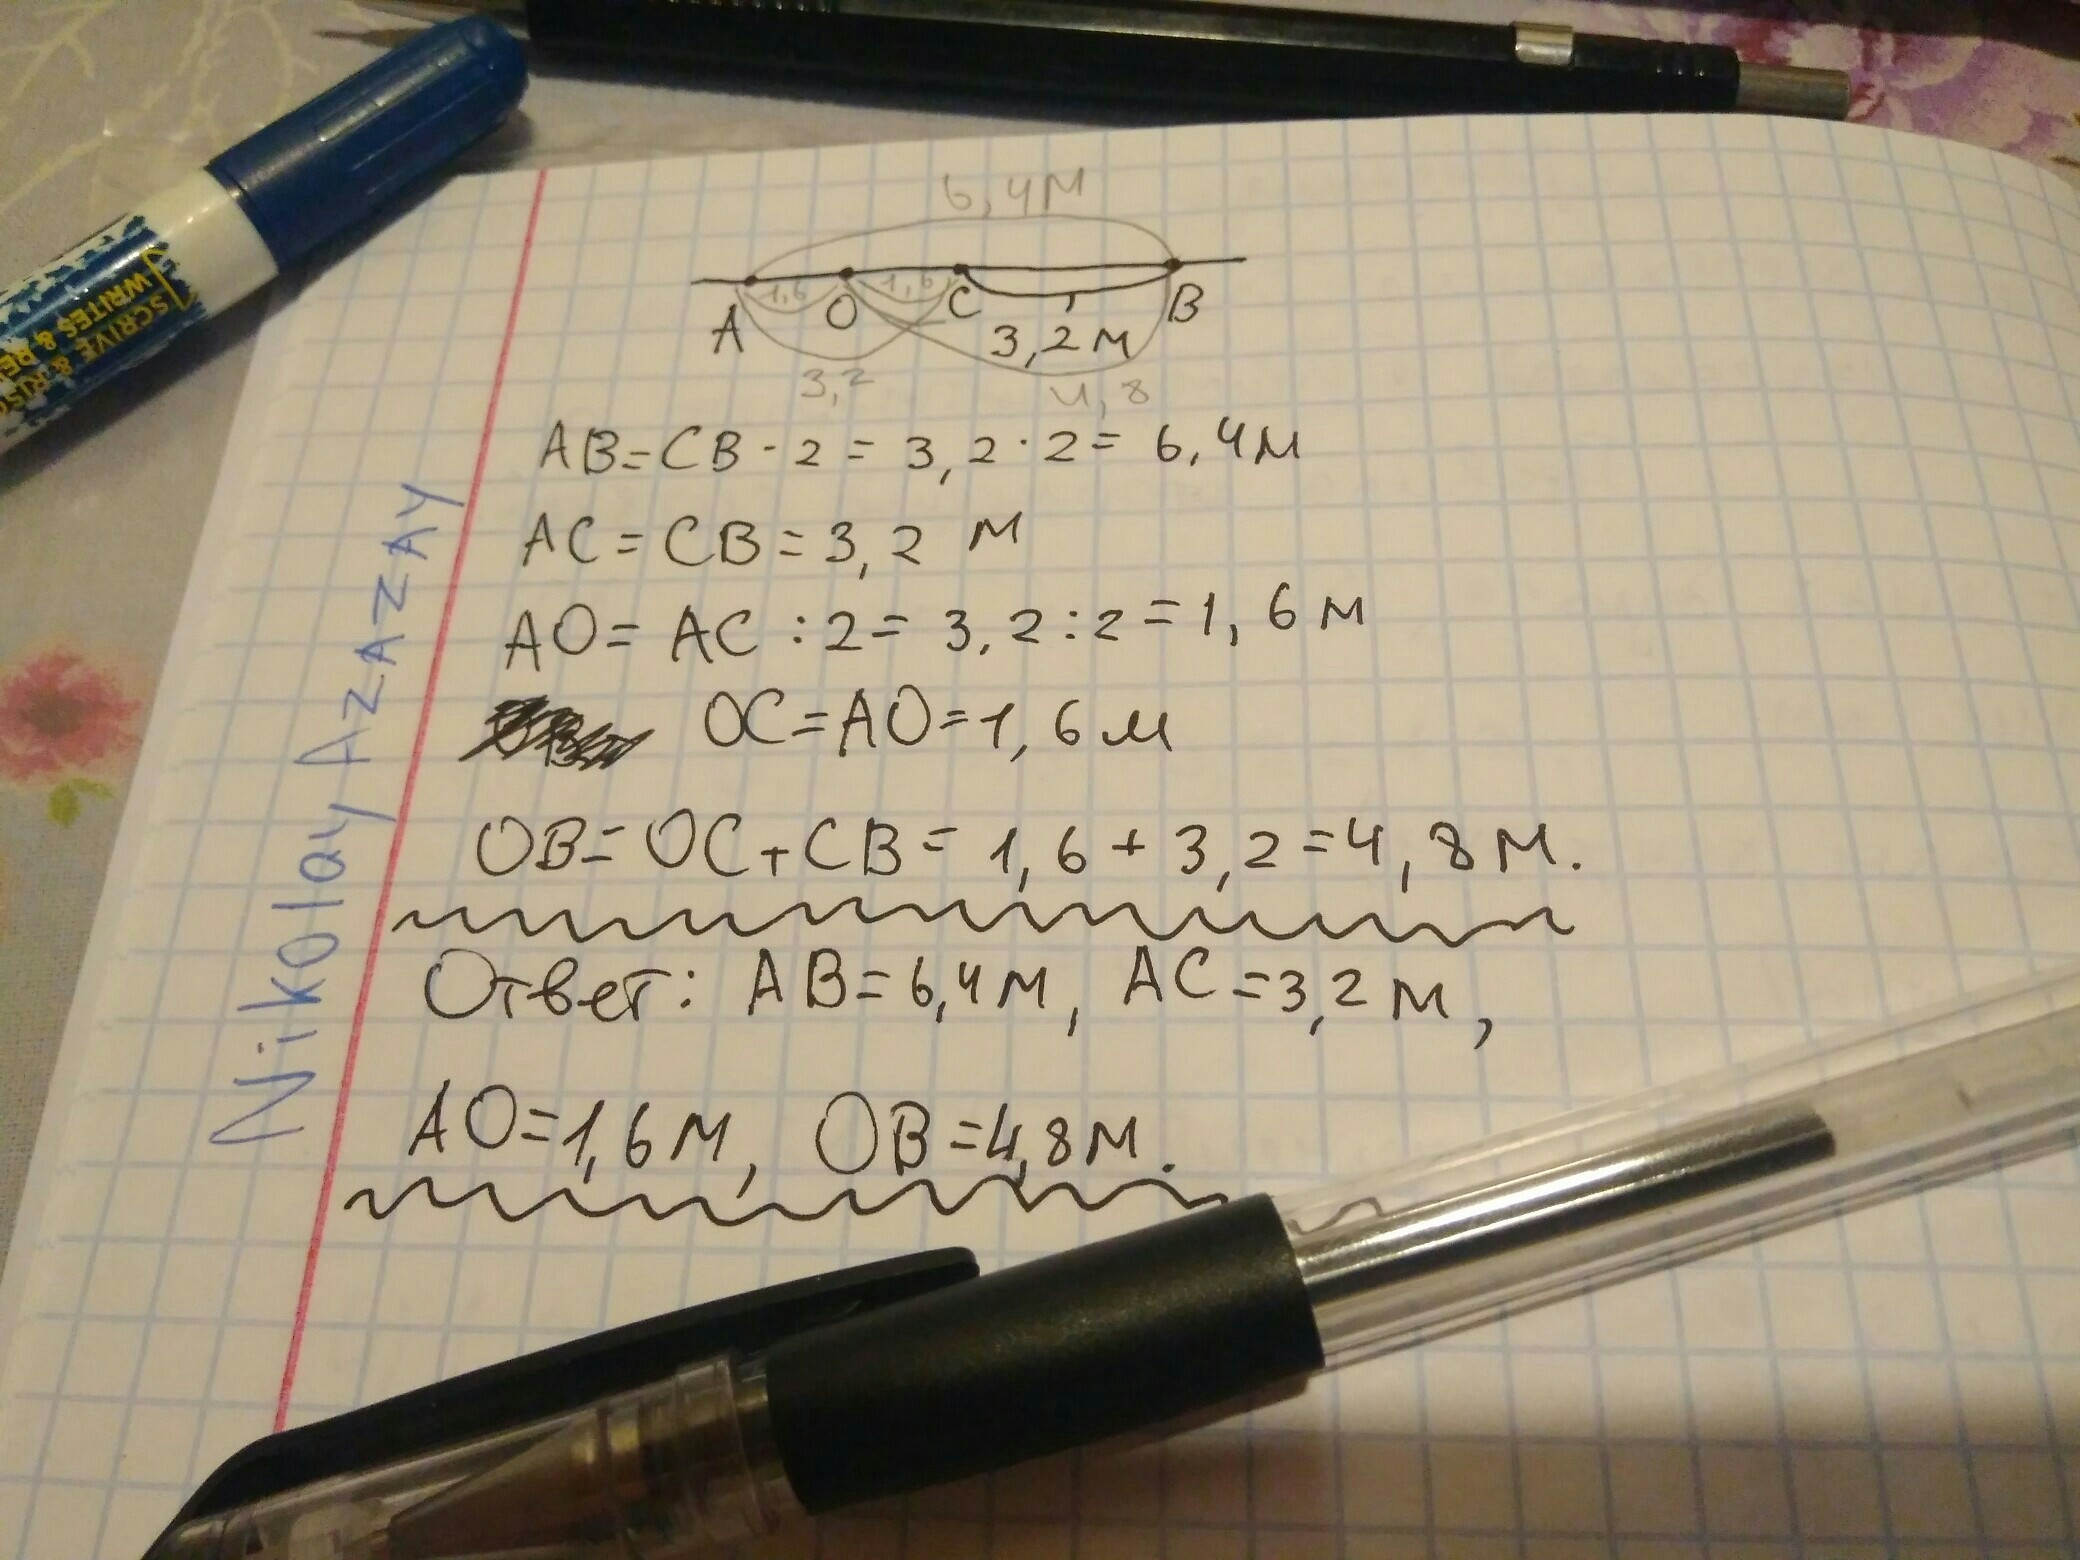 6,4м
1,6 1,6
A O C B
3,2м
3,2 4,8
AB=CB·2=3,2·2=6,4м
AC=CB=3,2 м
AO=AC:2=3,2:2=1,6м
OC=AO=1,6м
OB=OC+CB=1,6+3,2=4,8м.
Ответ: AB=6,4м, AC=3,2м,
AO=1,6м, OB=4,8м.
Nikolay AZAZAY
SCRIVE &
WRITES &